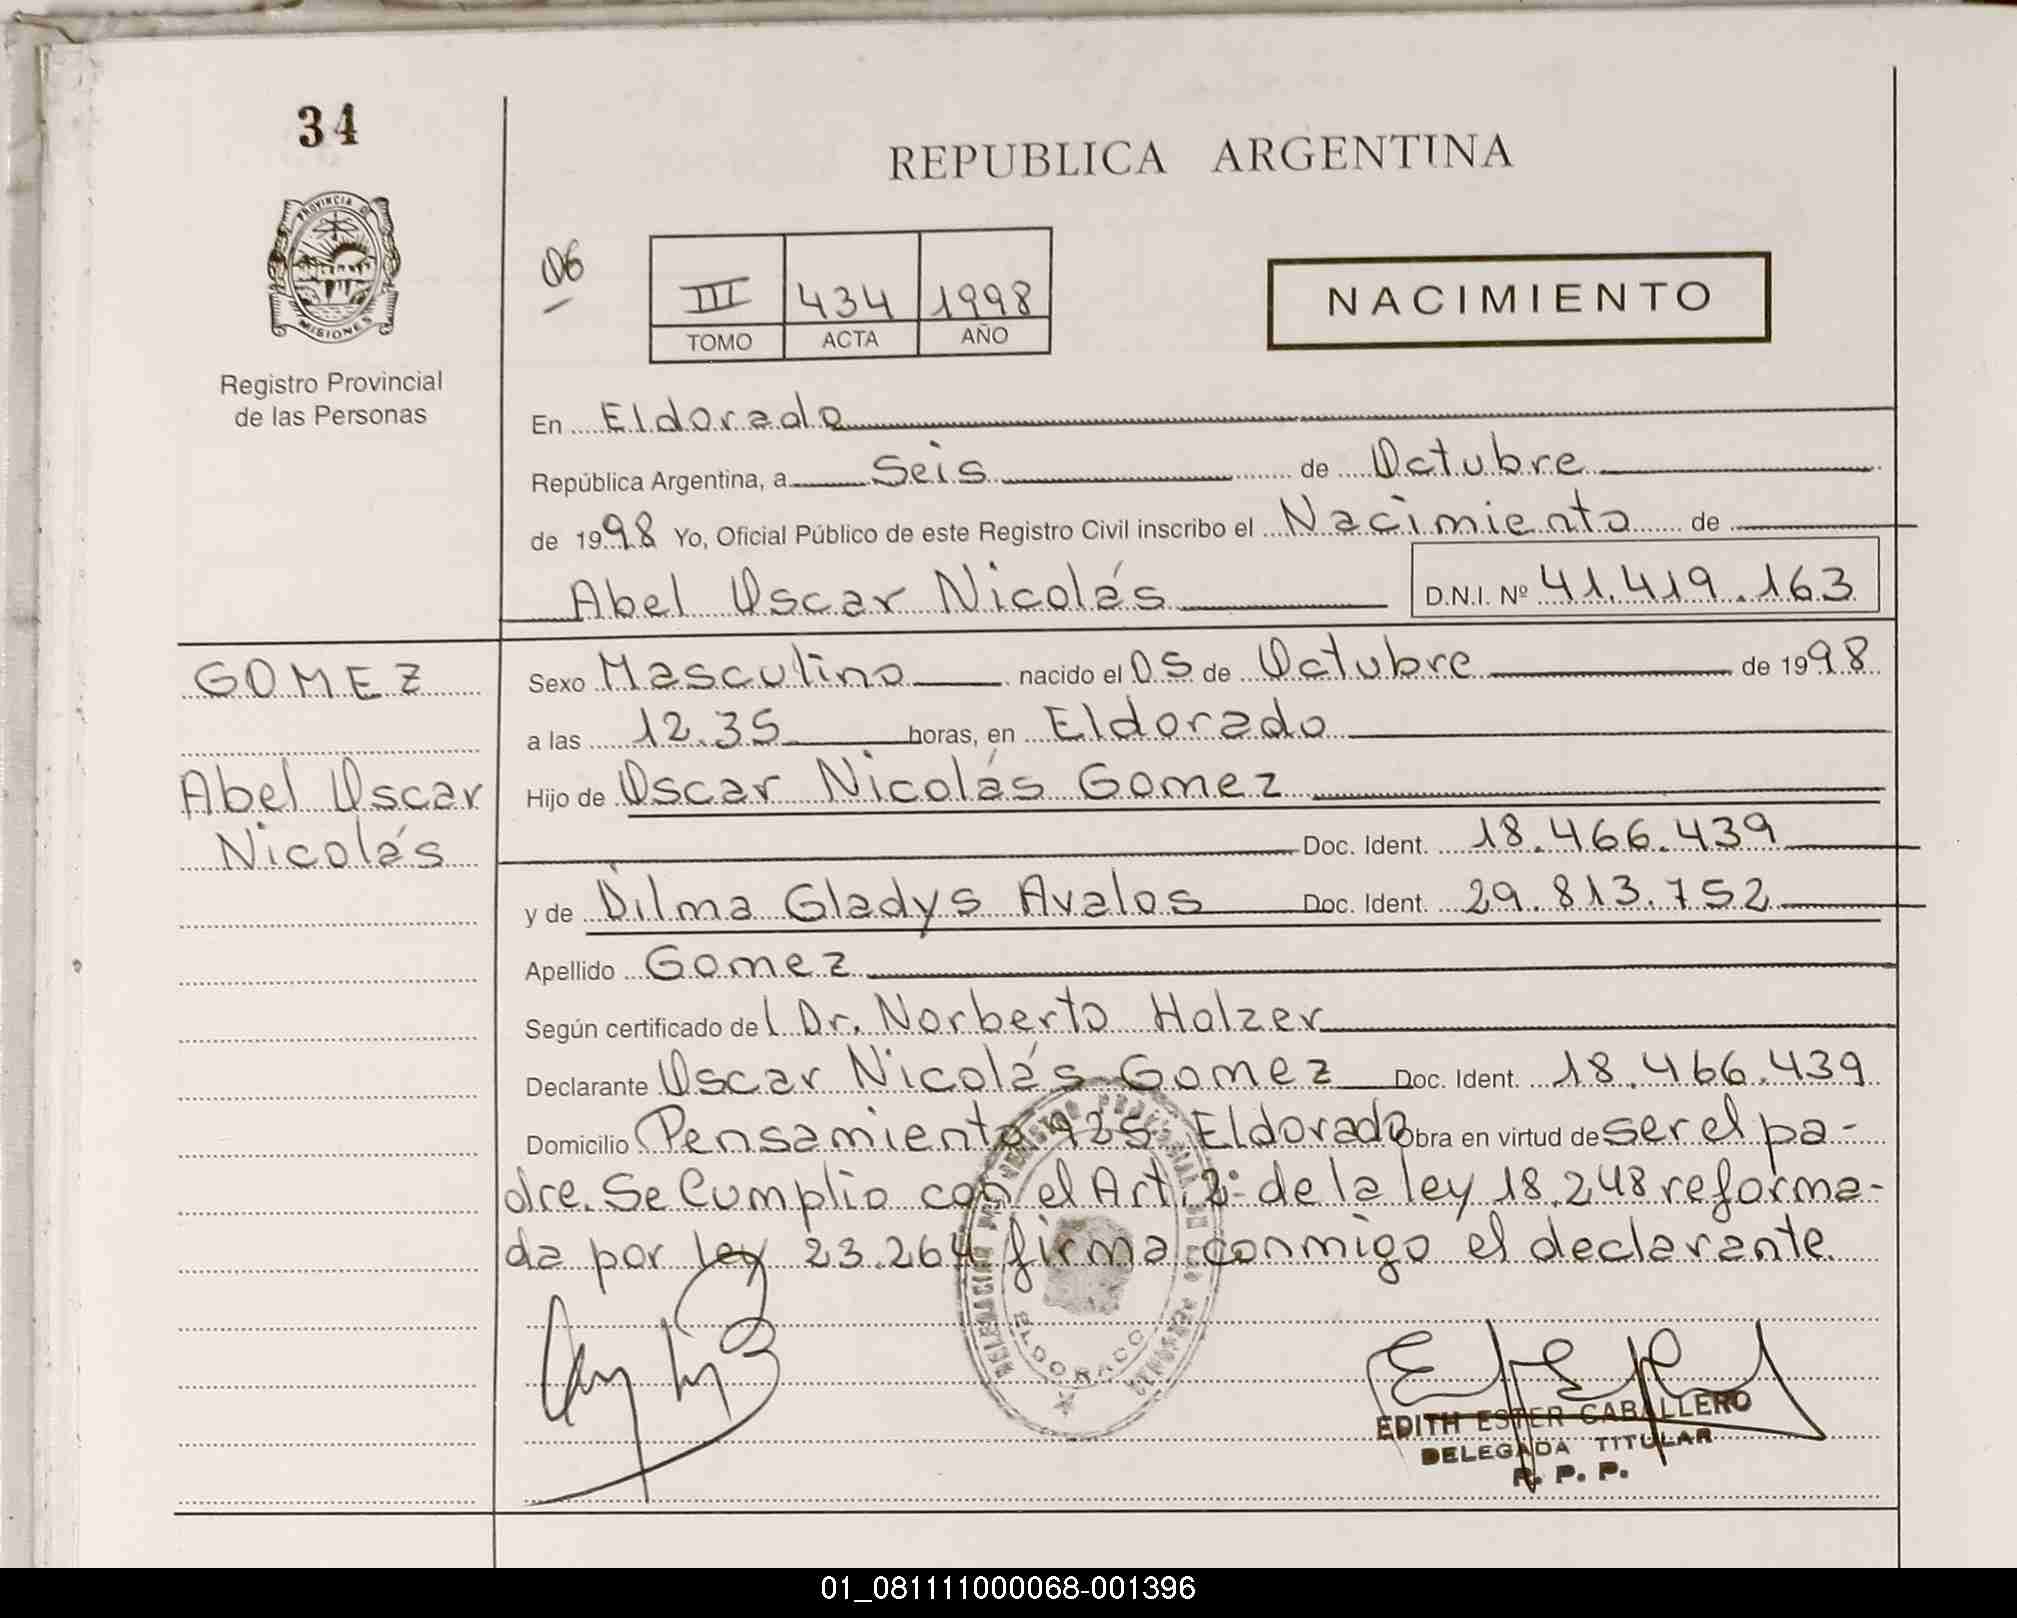 34
REPUBLICA ARGENTINA
PROVINCIA DE
MISIONES
Registro Provincial
de las Personas
06
III 434 1998
TOMO ACTA AÑO
NACIMIENTO
En Eldorado
República Argentina, a Seis de Octubre
de 1998 Yo, Oficial Público de este Registro Civil inscribo el Nacimiento de
Abel Oscar Nicolás D.N.I. Nº 41.419.163
GOMEZ
Abel Oscar
Nicolás
Sexo Masculino nacido el 05 de Octubre de 1998
a las 12.35 horas, en Eldorado
Hijo de Oscar Nicolás Gomez
Doc. Ident. 18.466.439
y de Dilma Gladys Avalos Doc. Ident. 29.813.752
Apellido Gomez
Según certificado del Dr. Norberto Holzer
Declarante Oscar Nicolás Gomez Doc. Ident. 18.466.439
Domicilio Pensamiento 925 Eldorado Obra en virtud de ser el pa-
dre. Se Cumplio con el Art. 2º de la ley 18.248 reforma-
da por ley 23.264 firma conmigo el declarante.
ELDORADO
EDITH ESTER CABALLERO
DELEGADA TITULAR
R. P. P.
01_081111000068-001396